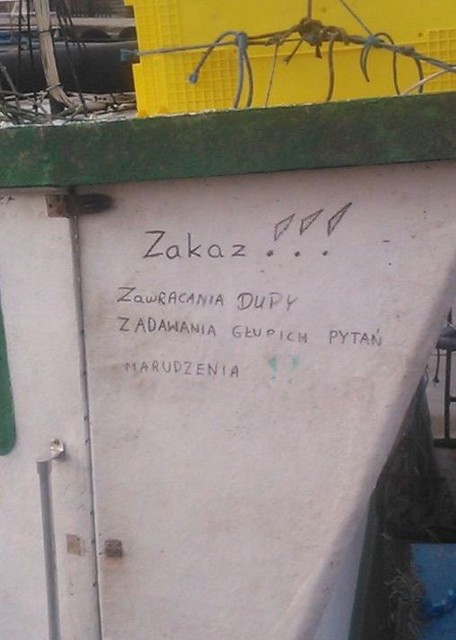 Zakaz !!!
Zawracania DUPY
ZADAWANIA GŁUPICH PYTAŃ
MARUDZENIA !!